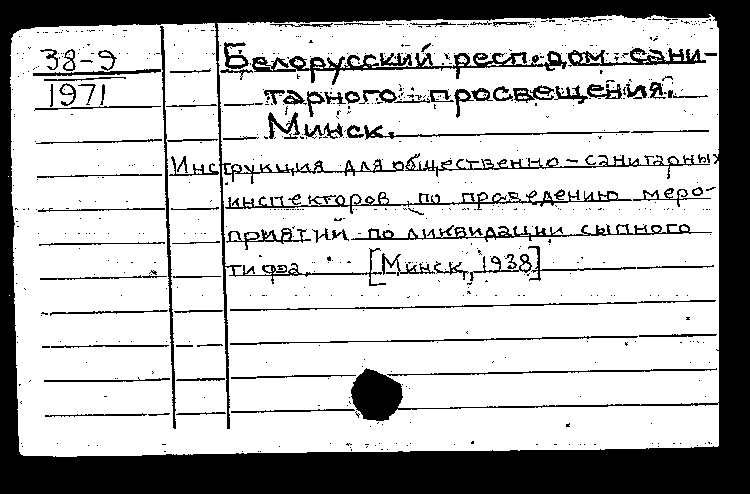 38-9
1971
Белорусский респ. дом сани-
тарного просвещения.
Минск.
Инструкция для общественно-санитарных
инспекторов по проведению меро-
приятий по ликвидации сыпного
тифа. [Минск, 1938]